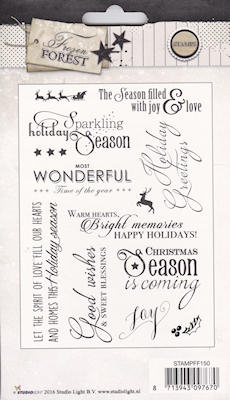 Frozen
FOREST
The Season filled
with joy & love
Sparkling
holiday Season
Holiday
Greetings
MOST
WONDERFUL
Time of the year
LET THE SPIRIT OF LOVE FILL OUR HEARTS
AND HOMES THIS holiday season
WARM HEARTS,
Bright memories
HAPPY HOLIDAYS!
Good wishes
& SWEET BLESSINGS
CHRISTMAS
Season
is coming
Joy
STAMPFF150
STUDIOLIGHT 2016 Studio Light B.V. www.studiolight.nl
8 713943 097670